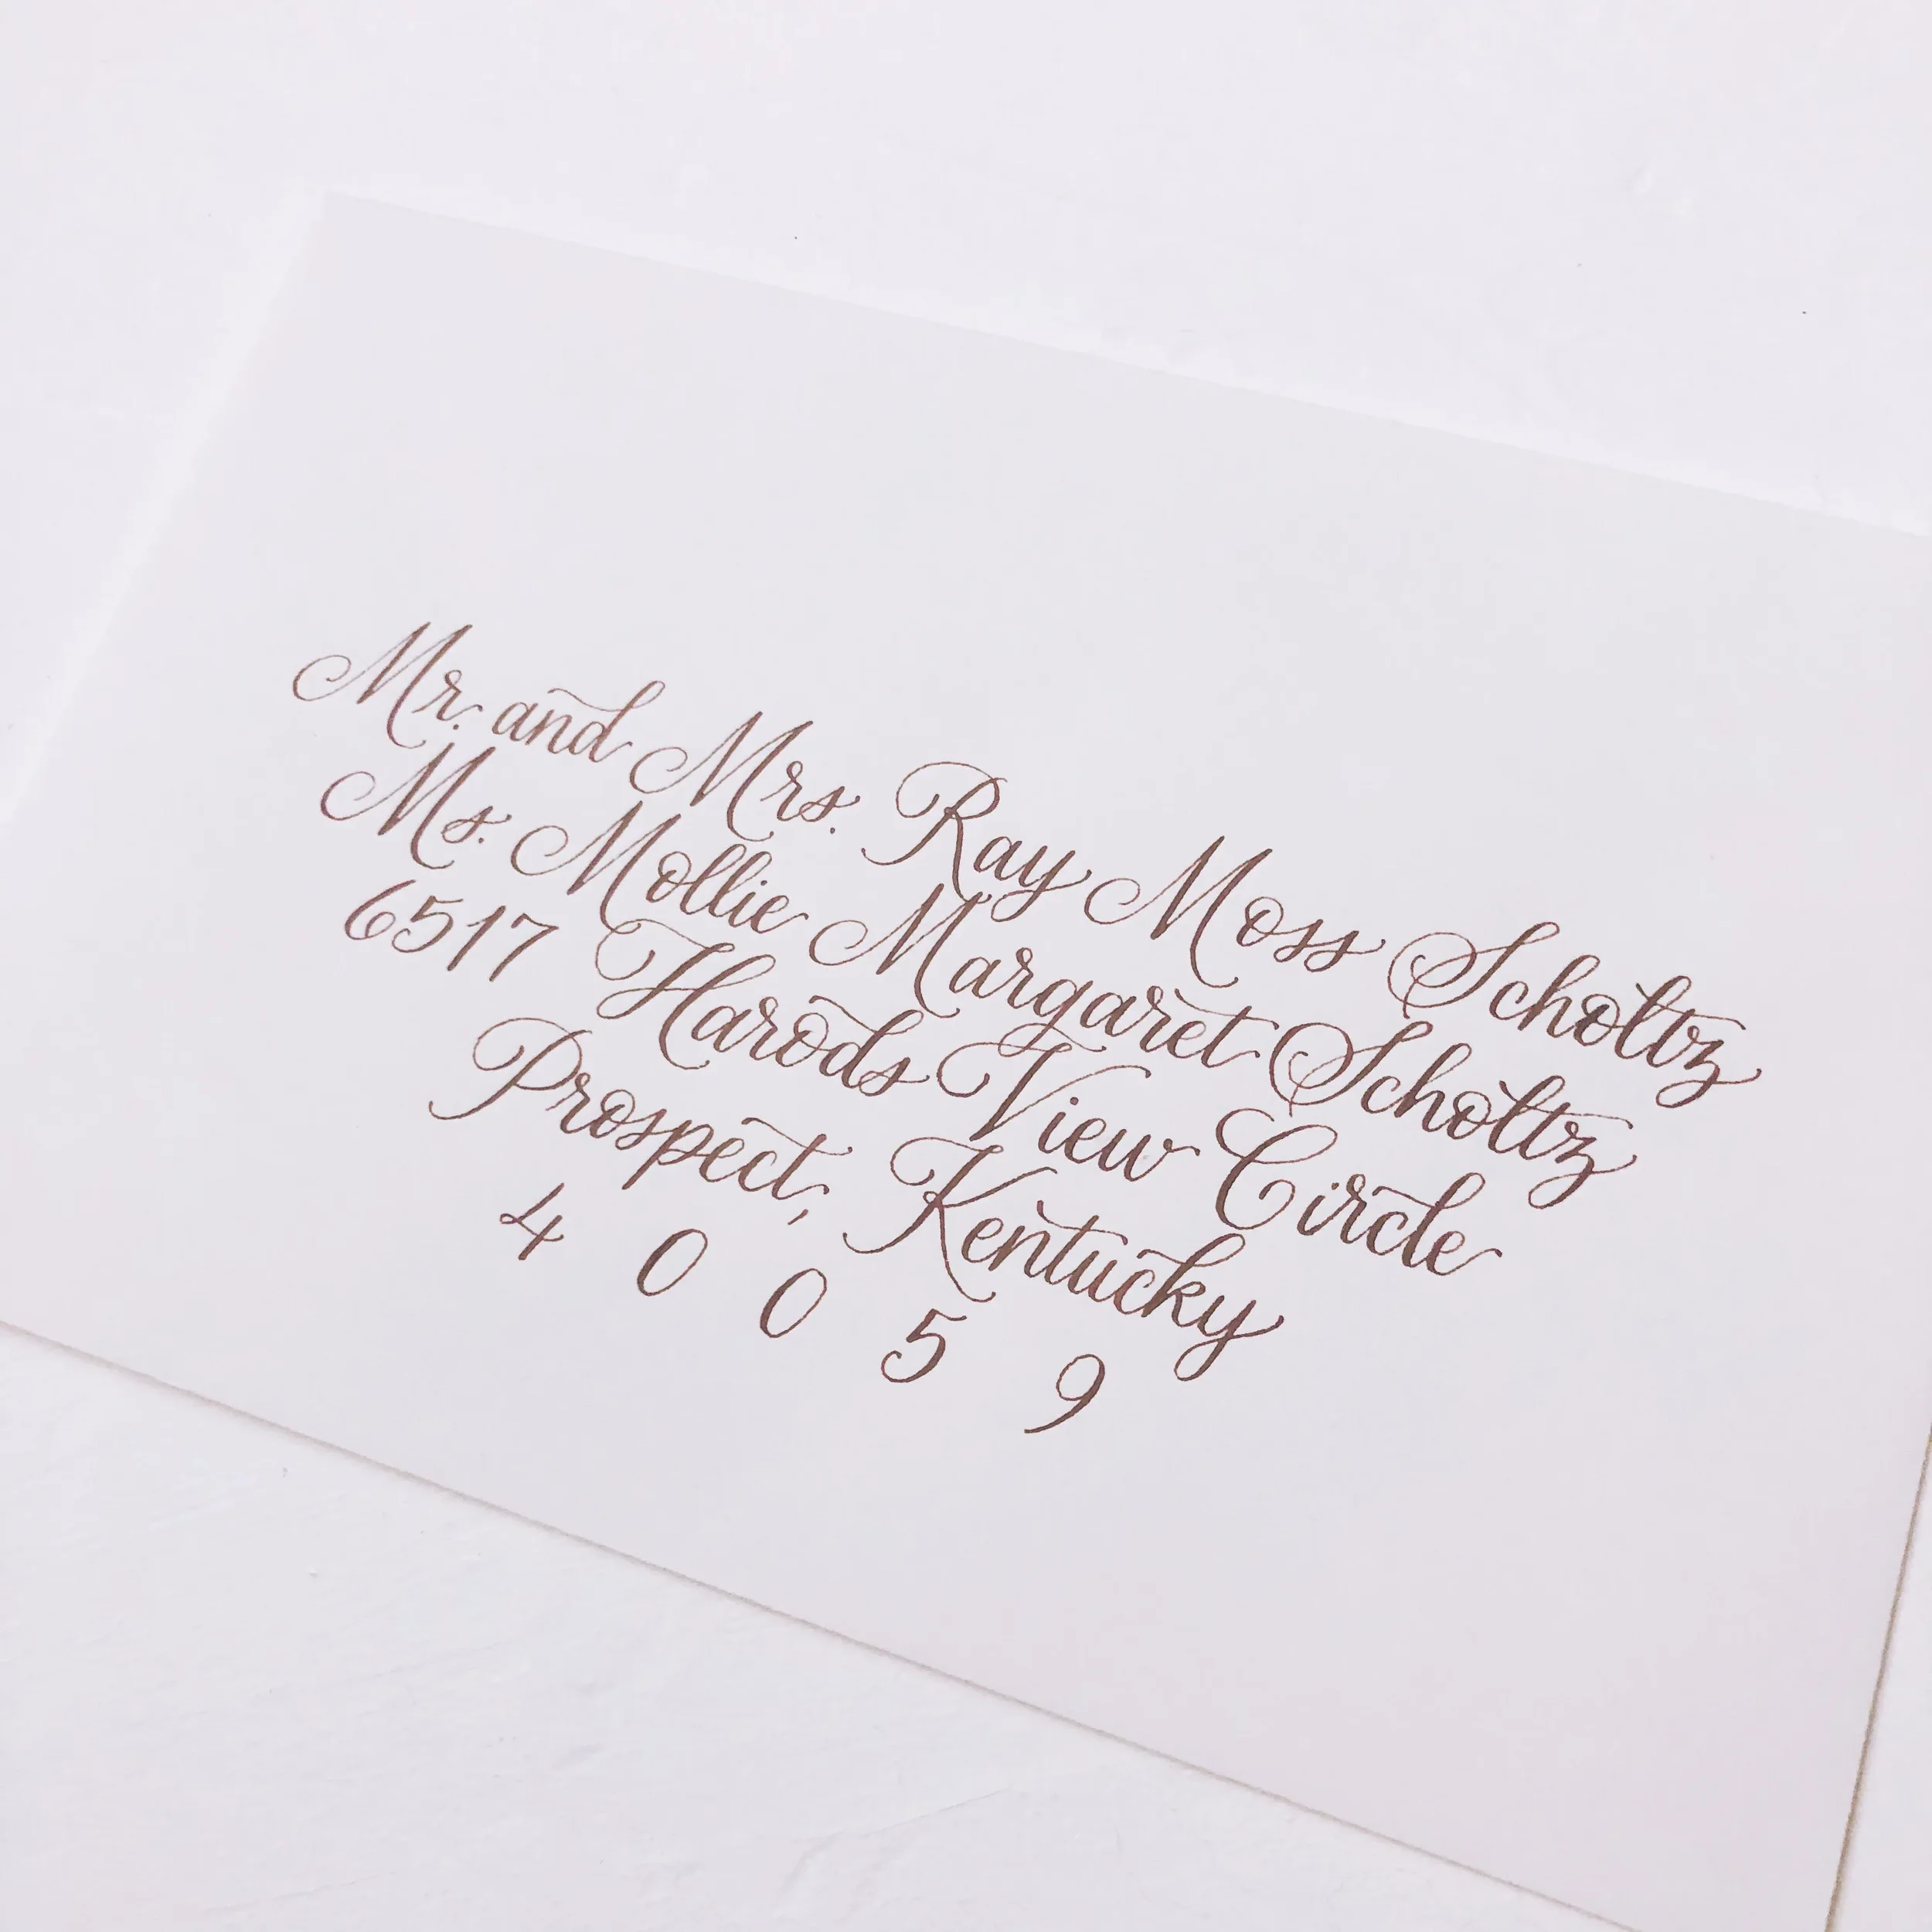 Mr. and Mrs. Ray Moss Scholtz
Ms. Mollie Margaret Scholtz
6517 Harods View Circle
Prospect, Kentucky
4 0 0 5 9